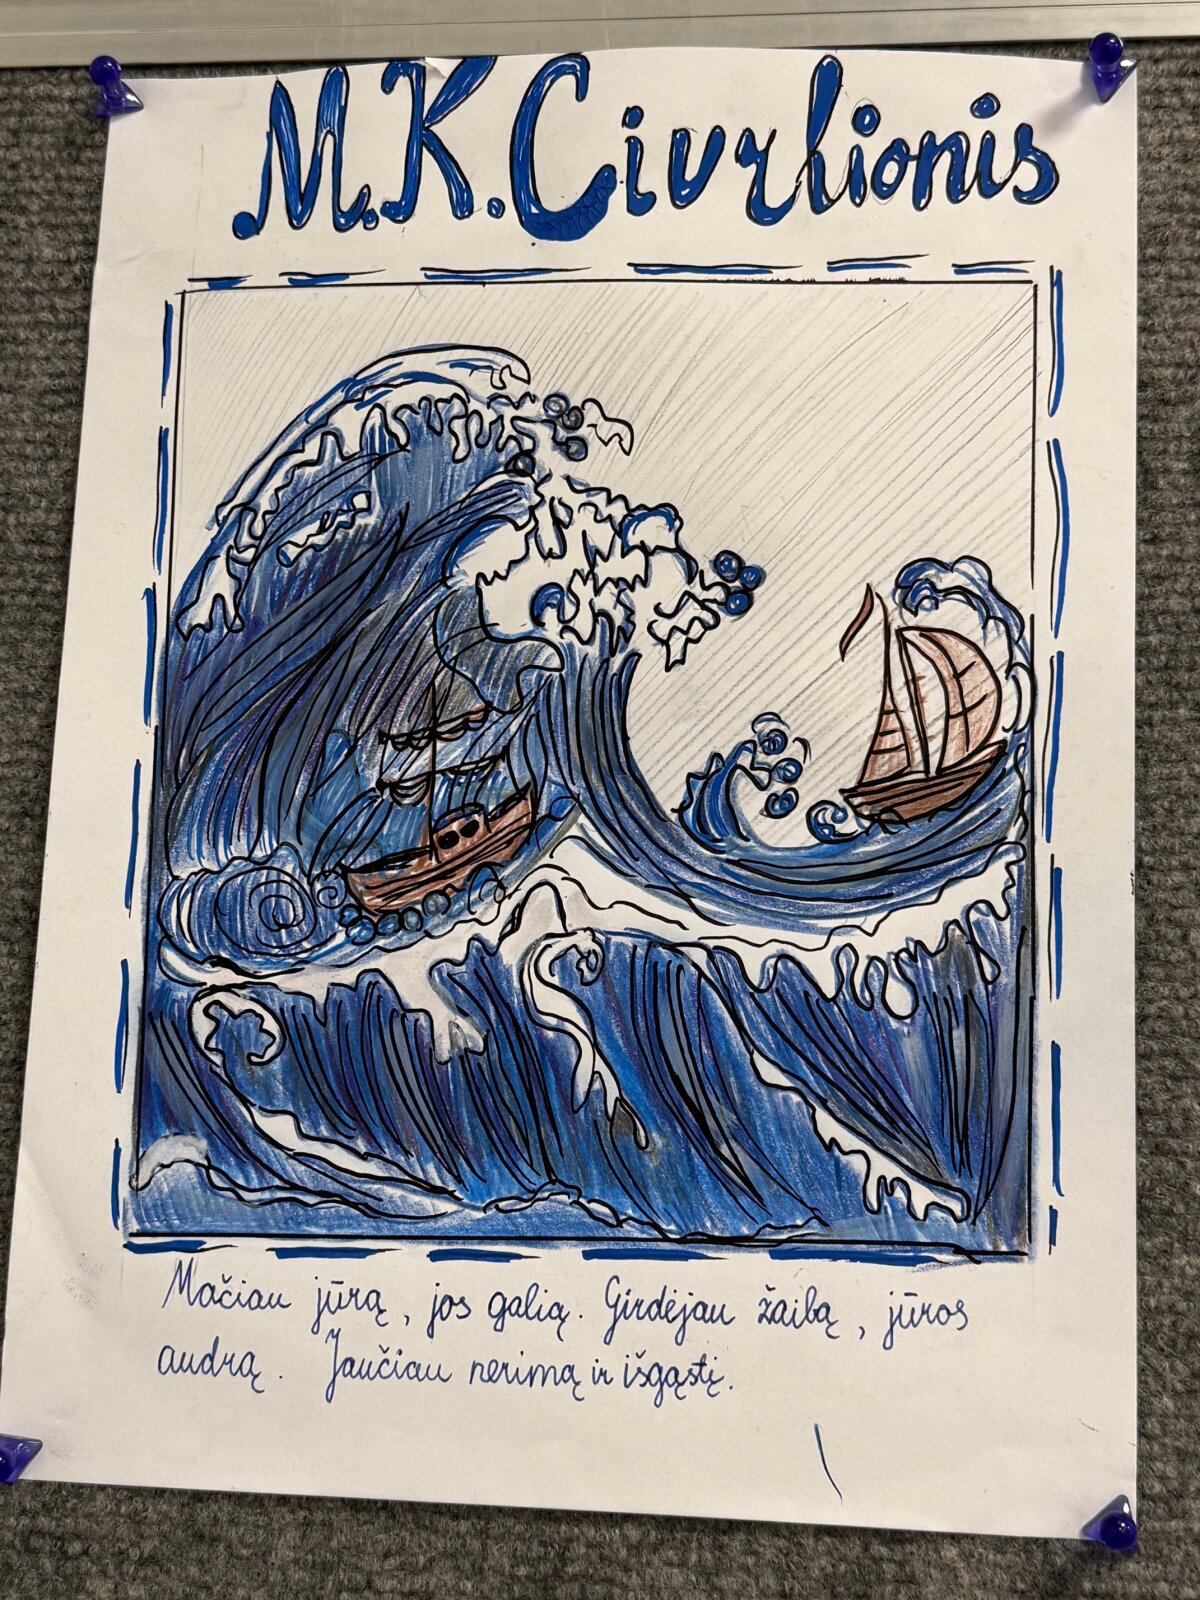 M.K.Civrlionis
Mačiau jūrą, jos galią. Girdėjau žaibą, jūros
audrą. Jaučiau nerimą ir išgąstį.